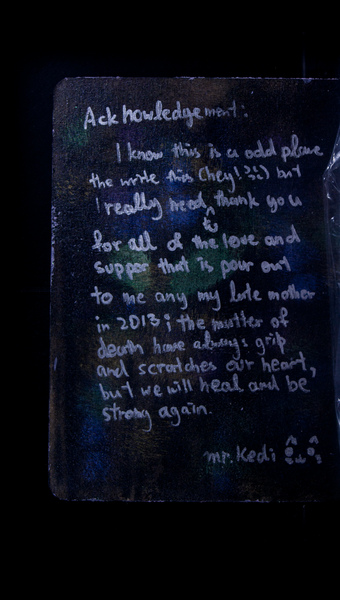 Acknowledgement:
I know this is a odd place
the write this (hey! :) but
I really need to thank you
for all of the love and
suppor that is pour out
to me any my late mother
in 2013; the matter of
death have always grip
and scratches our heart,
but we will heal and be
strong again.
mr. Kedi